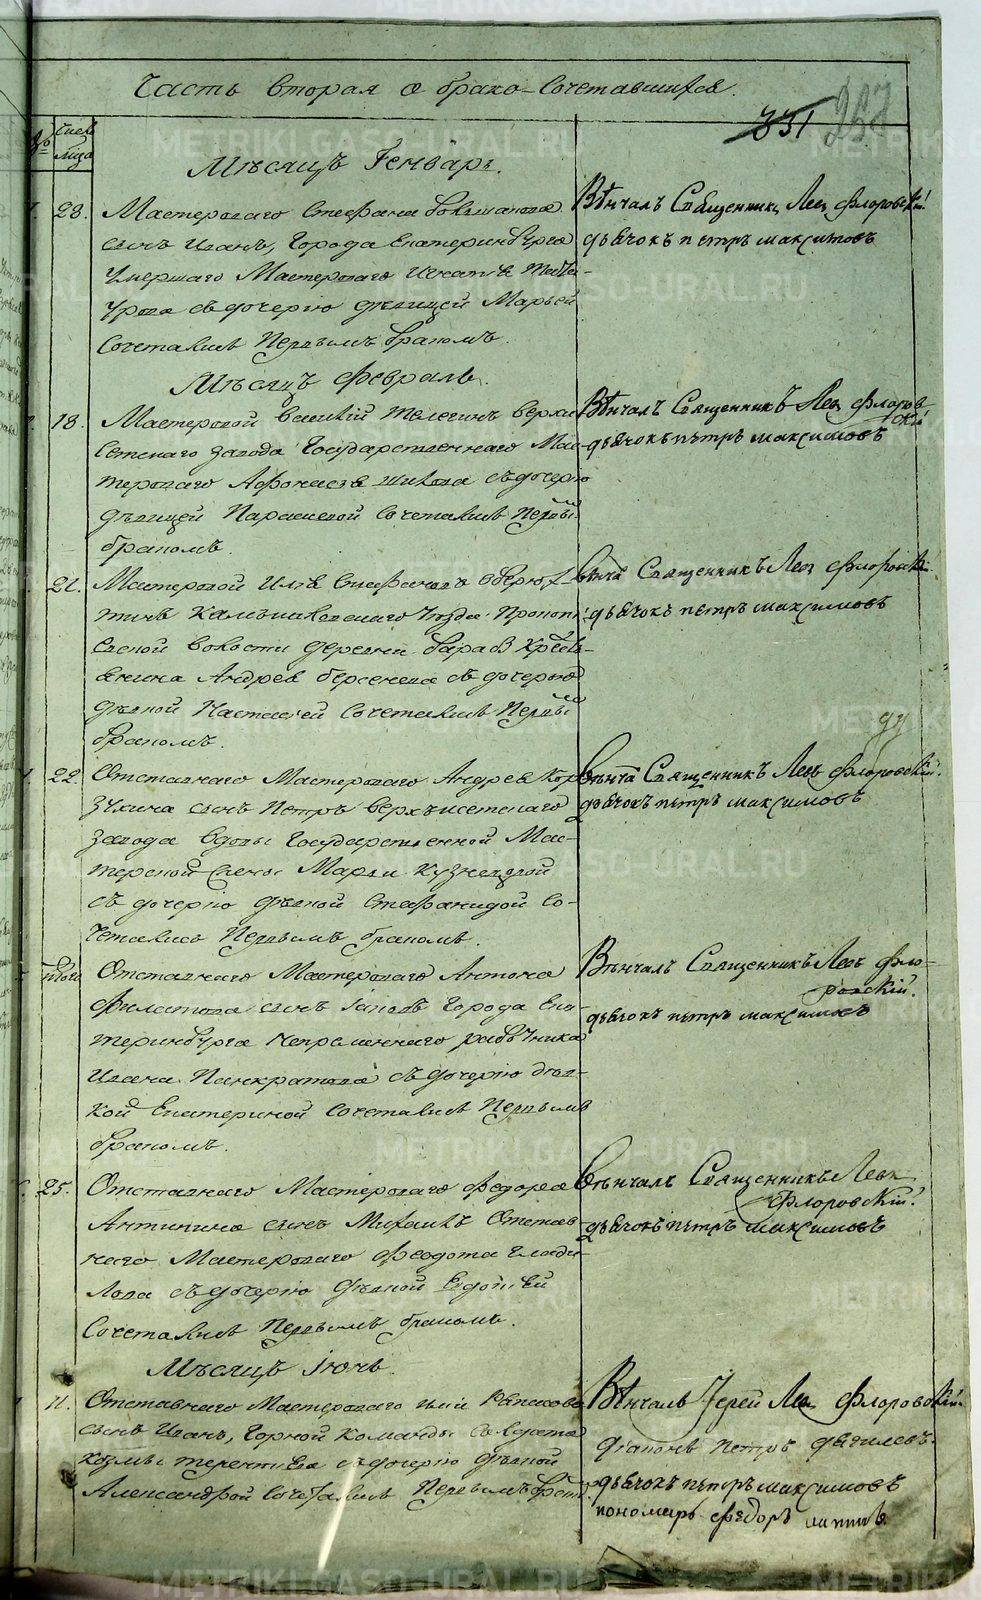 Часть вторая о брако-сочетавшихся.
331 257
Число
Мѣсяцъ Генварь.
28. Мастероваго Стефана сынъ Иванъ, Города Екатеринбурга
умершаго Мастероваго Игнатія
съ дочерью дѣвицей Марьей
сочетались первымъ бракомъ.
Вѣнчалъ Священникъ Левъ Флоровскій
дьячокъ петръ максимовъ
Мѣсяцъ Февраль.
18. Мастеровой Василій Телегинъ Верхъ
Сетскаго завода Государственнаго Мас-
тероваго Афонасья Шихова съ дочерью
дѣвицей Парасковой сочетались первы
бракомъ.
Вѣнчалъ Священникъ Левъ Флоров
скій
дьячокъ петръ максимовъ
21. Мастеровой Илья Стефановъ Оберюх-
тинъ Камышловскаго Уѣзда
волости деревни Кресть-
янина Андрея Берсенева съ дочерью
дѣвкой Настасіей сочетались первы
бракомъ.
Вѣнча Священникъ Левъ Флоровскі
дьячокъ петръ максимовъ
22. Отставнаго Мастероваго Андрея Кор
зухина сынъ Петръ Верхъисетскаго
завода вдовы Государственной Мас-
терской жены Марьи Кузнецовой
съ дочерью дѣвкой Стефанидой со-
четались первымъ бракомъ.
Вѣнча Священникъ Левъ Флоровскій.
дьячокъ петръ максимовъ
Отставнаго Мастероваго Антона
Филатова сынъ Іаковъ Города Ека-
теринбурга непременнаго работника
Ивана Панкратова съ дочерью дѣв-
кой Екатериной сочетались первымъ
бракомъ.
Вѣнчалъ Священникъ Левъ Фло-
ровскій.
дьячокъ петръ максимовъ
25. Отставнаго Мастероваго Федора
Антипина сынъ Михаилъ Отстав
наго Мастероваго Феодота Глады
съ дочерью дѣвкой Евдокіей
сочетались первымъ бракомъ.
Вѣнчалъ Священникъ Левъ
Флоровскій
дьячокъ петръ максимовъ
Мѣсяцъ Іюнь.
11. Отставнаго Мастероваго
сынъ Иванъ, Горной команды солдата
Козмы Терентьева съ дочерью дѣвкой
Александрой сочетались первымъ
Вѣнчалъ Іерей Левъ Флоровскій.
діаконъ петръ
дьячокъ петръ максимовъ
пономарь федоръ
METRIKI.GASO-URAL.RU